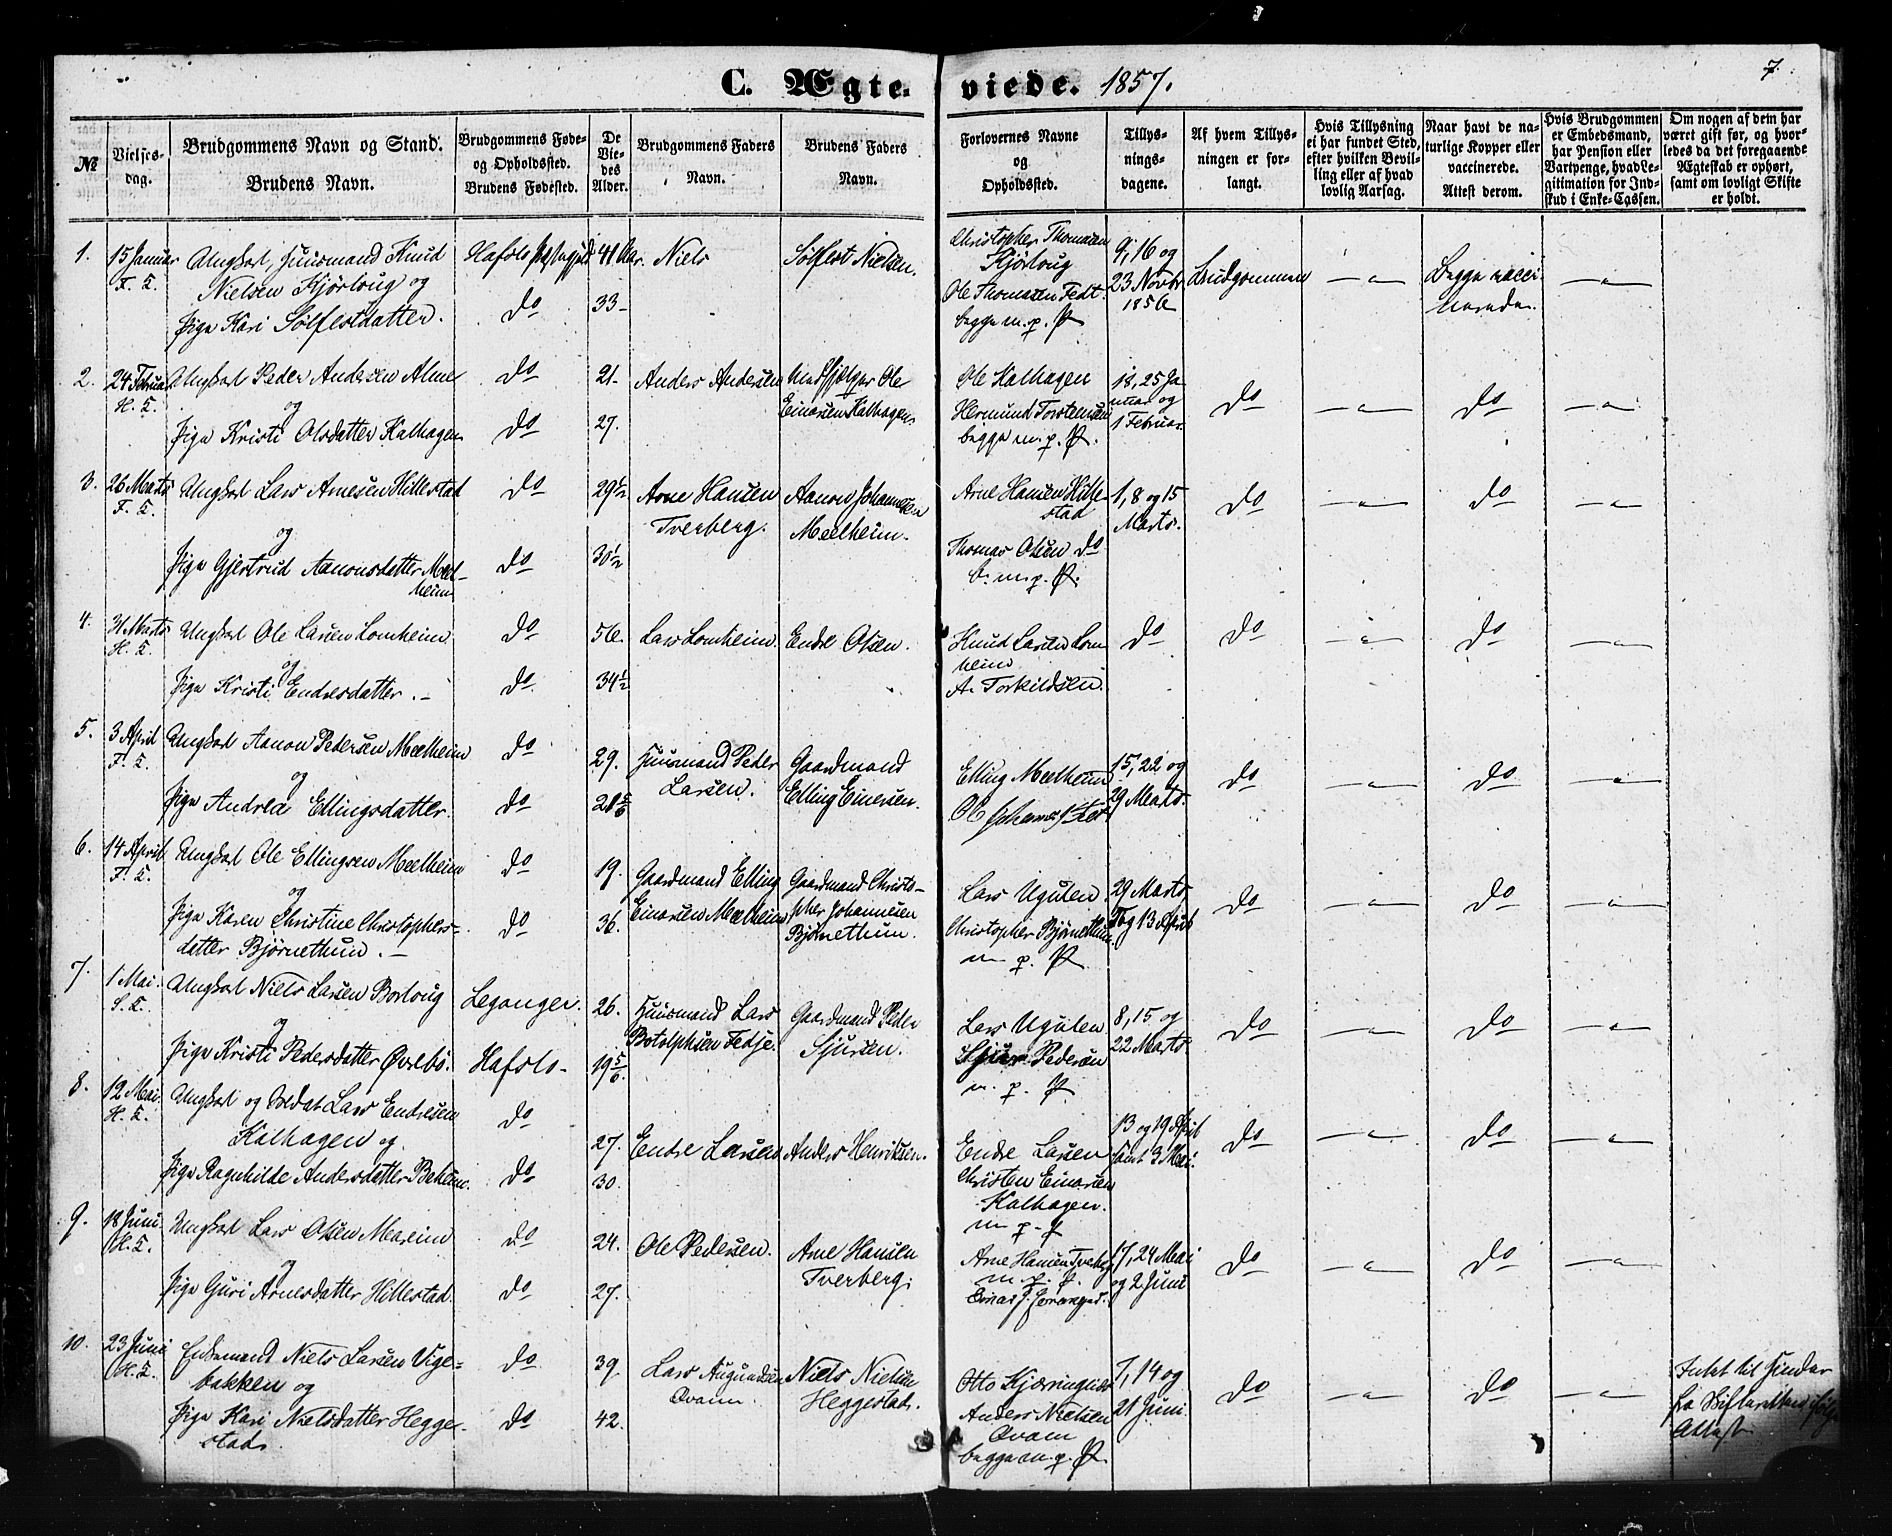 C. Ægteviede. 1857.
7.
№
Vielses-
dag.
Brudgommens Navn og Stand.
Brudens Navn.
Brudgommens Føde-
og Opholdssted.
Brudens Fødested.
De
Vie-
des
Alder.
Brudgommens Faders
Navn.
Brudens Faders
Navn.
Forlovernes Navne
og
Opholdssted.
Tillys-
nings-
dagene.
Af hvem Tillys-
ningen er for-
langt.
Hvis Tillysning
ei har fundet Sted,
efter hvilken Bevil-
ling eller af hvad
lovlig Aarsag.
Naar havt de na-
turlige Kopper eller
vaccinerede.
Attest derom.
Hvis Brudgommen
er Embedsmand,
har Pension eller
Vartpenge, hvad Le-
gitimation for Ind-
skud i Enke-Cassen.
Om nogen af dem har
været gift før, og hvor-
ledes da det foregaaende
Ægteskab er ophørt,
samt om lovligt Skifte
er holdt.
1. 15 Januar
Ungkarl Huusmand Knud
Nielsen Kjørloug og
Pige Kari Sølfestdatter.
Hafslo
do
41 Aar.
33
Niels
Sølfest Nielsen.
Christopher Thomasen
Kjørloug
Ole Thomasen Fedt.
begge m. p. P.
9, 16 og
23 Novbr
1856
Brudgommen
Begge vacci
nerede.
2. 24 Februar
H. K.
Ungkarl Peder Andersen Alme
og
Pige Kristi Olsdatter Kalhagen
do
do
21.
27.
Anders Andersen
Ole
Einarsen Kalhagen
Ole Kalhagen
Hermund Torstensen
begge m. p. P.
18, 25 Ja
nuar og
1 Februar
do
do
3. 26 Marts
Ungkarl Lars Arnesen Hillestad
og
Pige Gjertrud Aanonsdatter Meel-
heim
do
do
29½
30½
Arne Hansen
Tverberg.
Aanon Johannesen
Meelheim.
Arne Hansen Hille
stad
Thomas Olsen do
b. m. p. P.
1, 8 og 15
Marts.
do
do
4. 31 Marts
H. K.
Ungkarl Ole Larsen Lomheim
og
Pige Kristi Endresdatter.
do
do
56.
34½
Lars Lomheim.
Endre Olsen.
Knud Larsen Lom
heim
A. Torkildsen.
do
do
do
5. 3 April
Ungkarl Aanon Pedersen Meelheim
og
Pige Andrea Ellingsdatter.
do
do
29.
Huusmand Peder
Larsen.
Gaardmand
Elling Einersen.
Elling Meelheim
15, 22 og
29 Marts.
do
do
6. 14 April
Ungkarl Ole Ellingsen Meelheim
og
Pige Karen Christine Christophers-
datter Bjørnethun.
do
do
19.
36.
Gaardmand Elling
Einarsen Meelheim
Gaardmand Christo-
pher Johannesen
Bjørnethun.
Lars Ugulen
Christopher Bjørnethun
m. p. P.
29 Marts
og 13 April
do
do
7. 1 Mai
Ungkarl Niels Larsen Borloug
og
Pige Kristi Pedersdatter Øvrebø.
Leganger.
Hafslo
26.
Huusmand Lars
Botolphsen Fedje.
Gaardmand Peder
Sjursen.
Lars Ugulen
Sjur Pedersen
m. p. P.
8, 15 og
22 Marts.
do
do
8. 12 Mai.
H. K.
Ungkarl og Soldat Lars Endresen
Kalhagen og
Pige Ragnhilde Andersdatter
do
do
27.
30.
Endre Larsen
Anders Henriksen.
Endre Larsen
Christen Einarsen
Kalhagen.
m. p. P
13 og 19 April
samt 3 Mai.
do
do
9. 18 Juni.
H. K.
Ungkarl Lars Olsen
og
Pige Guri Arnesdatter Hillestad.
do
do
24.
27.
Ole Pedersen.
Arne Hansen
Tverberg.
Arne Hansen Tverberg
m. p. P.
17, 24 Mai
og 2 Juni
do
do
10. 23 Juni
H. K.
Enkemand Niels Larsen Vige-
bakken og
Pige Kari Nielsdatter Hegge-
stad.
do
do
39
42.
Lars Augundsen
Qvam.
Niels Nielsen
Heggestad.
Otto Kjærringnæs
Anders Nielsen
Qvam
begge m. p. P.
7, 14 og
21 Juni
do
do
Intet til Hinder
fra Skifteretten
Attest